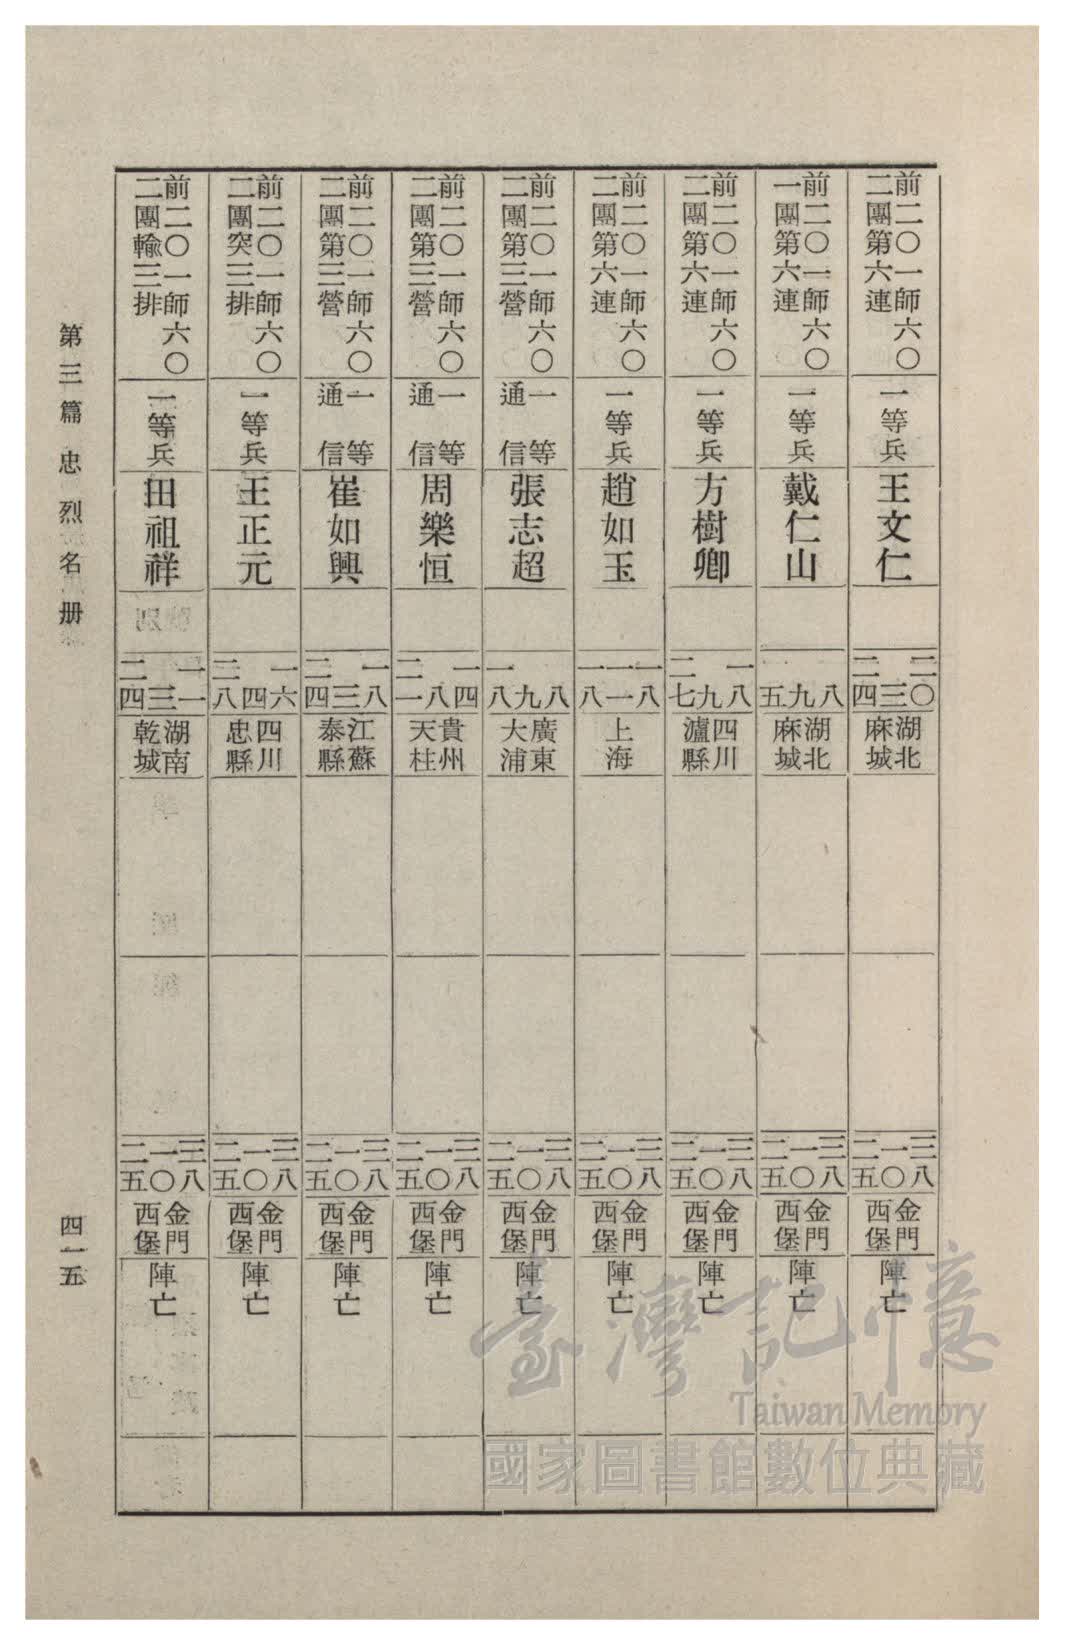 前二〇一師六〇
二團第六連
一等兵
王文仁
二〇
三
二四
湖北
麻城
三八
一〇
二五
金門
西堡
陣亡
前二〇一師六〇
一團第六連
一等兵
戴仁山
八
九
五
湖北
麻城
三八
一〇
二五
金門
西堡
陣亡
前二〇一師六〇
二團第六連
一等兵
方樹卿
一八
九
二七
四川
瀘縣
三八
一〇
二五
金門
西堡
陣亡
前二〇一師六〇
二團第六連
一等兵
趙如玉
一八
一一
一八
上海
三八
一〇
二五
金門
西堡
陣亡
前二〇一師六〇
二團第三營
一等
通信
張志超
八
九
一八
廣東
大浦
三八
一〇
二五
金門
西堡
陣亡
前二〇一師六〇
二團第三營
一等
通信
周樂恒
一四
八
二一
貴州
天柱
三八
一〇
二五
金門
西堡
陣亡
前二〇一師六〇
二團第三營
一等
通信
崔如興
一八
三
二四
江蘇
泰縣
三八
一〇
二五
金門
西堡
陣亡
前二〇一師六〇
二團突三排
一等兵
王正元
一六
四
二八
四川
忠縣
三八
一〇
二五
金門
西堡
陣亡
前二〇一師六〇
二團輸三排
一等兵
田祖祥
一一
三
二四
湖南
乾城
三八
一〇
二五
金門
西堡
陣亡
第三篇 忠烈名册
四一五
臺灣記憶
Taiwan Memory
國家圖書館數位典藏